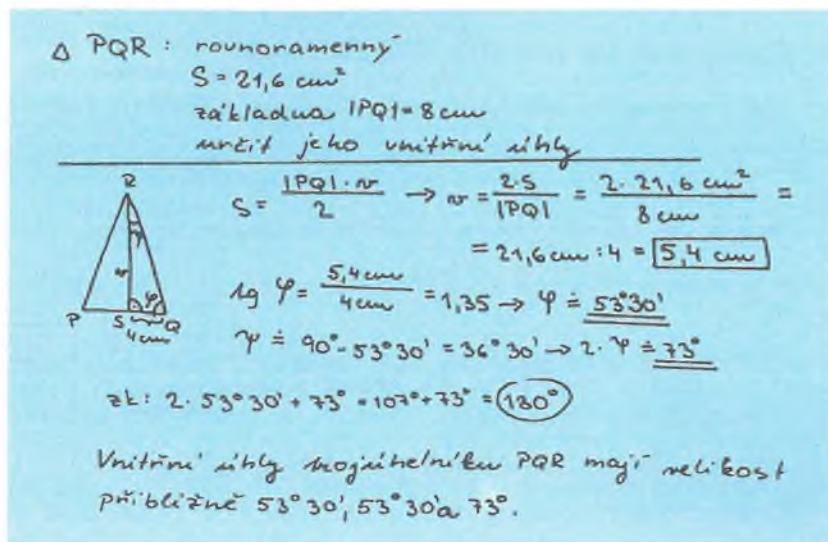 △ PQR : rovnoramenný
S = 21,6 cm²
základna |PQ| = 8 cm
určit jeho vnitřní úhly
R
S = |PQ| · v / 2 → v = 2·S / |PQ| = 2 · 21,6 cm² / 8 cm =
= 21,6 cm : 4 = 5,4 cm
ψ
v
φ
P S Q
4 cm
tg φ = 5,4 cm / 4 cm = 1,35 → φ ≐ 53°30'
ψ ≐ 90° - 53°30' = 36°30' → 2·ψ ≐ 73°
zk: 2 · 53°30' + 73° = 107° + 73° = 180°
Vnitřní úhly trojúhelníku PQR mají velikost
přibližně 53°30', 53°30' a 73°.